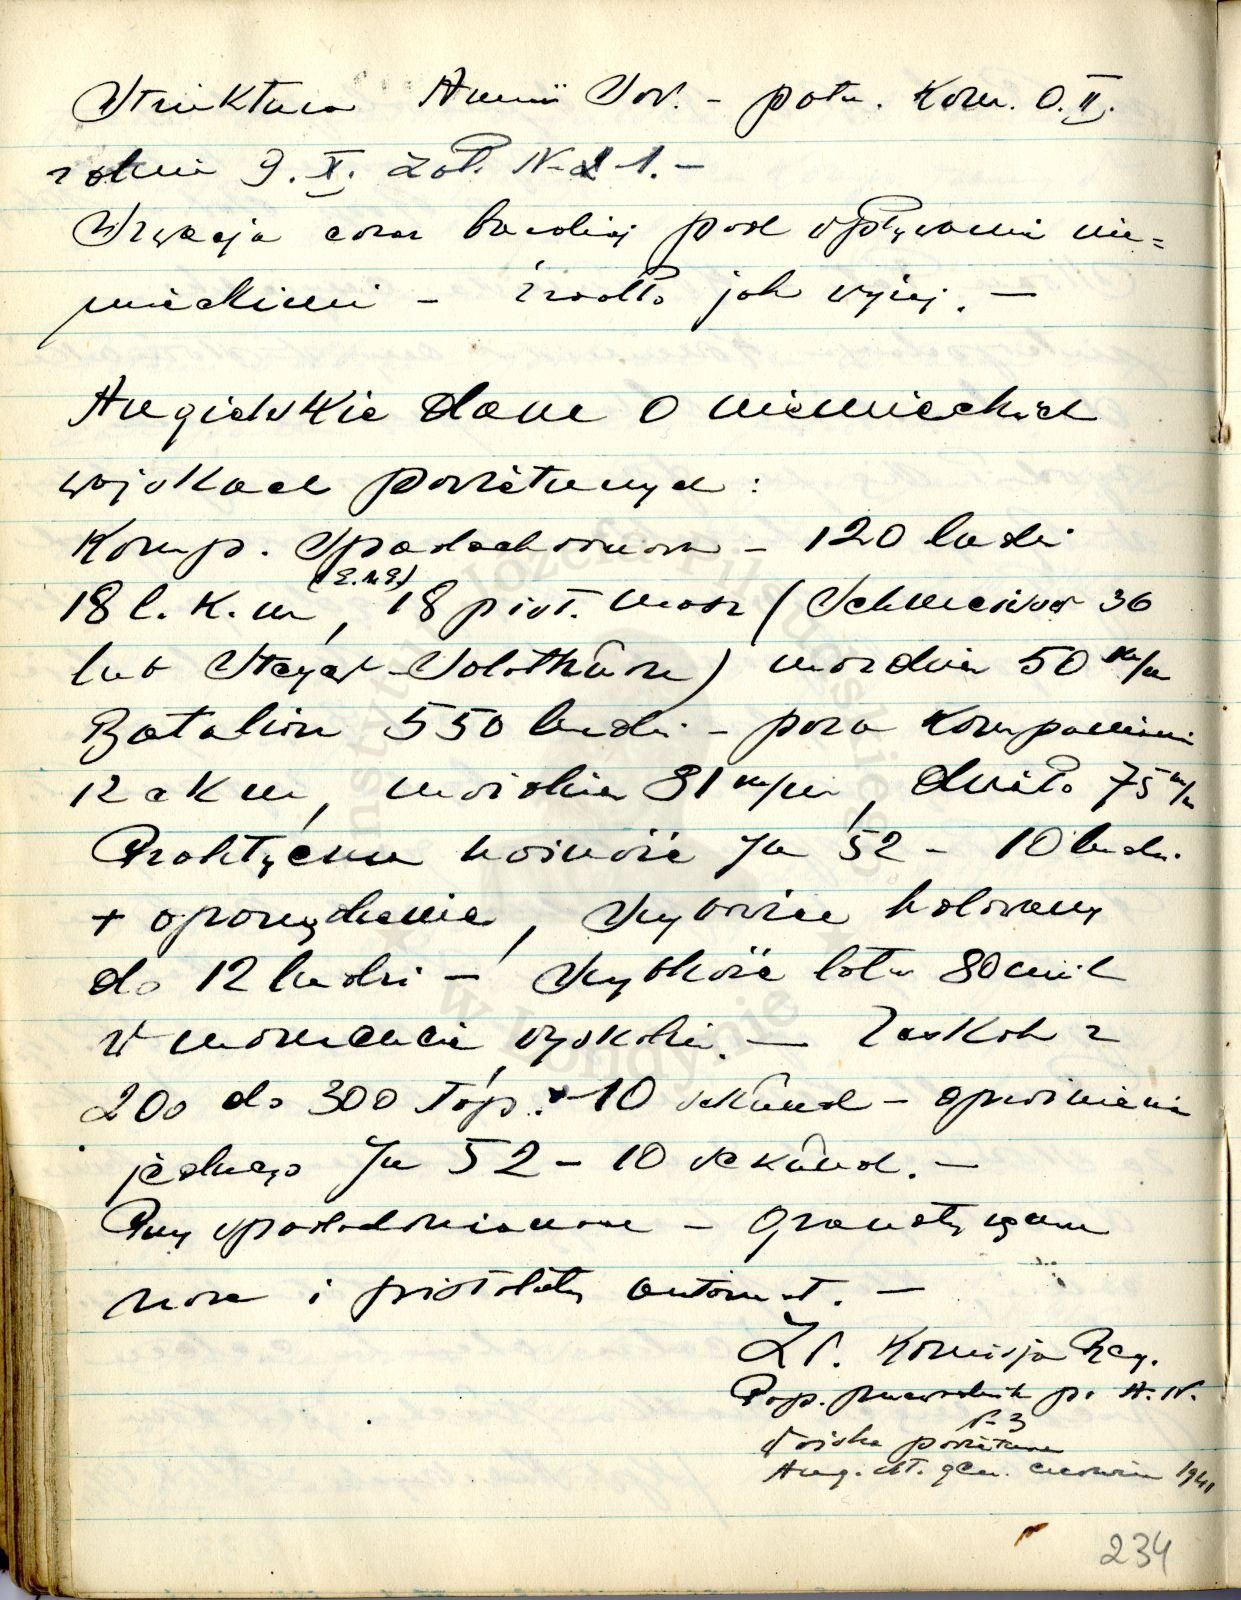 Struktura Armii Sov. – patrz Kom. O.II.
z dnia 9.X. Zał. N-1.–
Szwecja coraz bardziej pod wpływami nie=
mieckimi – źródło jak wyżej. –
Angielskie dane o niemieckich
wojskach powietrznych:
Komp. Spadochronowa – 120 ludzi
18 l.K.m, 18 pist. masz (Schmeisser 36
lub Steyer-Solothurn) moździerz 50 m/m
Batalion 550 ludzi – poza Kompaniami
12 cKm, moździerz 81 m/m, działo 75 m/m
Praktyczna nośność Ju 52 – 10 ludzi
+ oporządzenie, szybowiec holowany
do 12 ludzi – szybkość lotu 80 mil
w momencie wyskoku. – Zeskok z
200 do 300 stóp. 10 sekund – opróżnienie
jednego Ju 52 – 10 sekund. –
Przy spadochroniarzu – granaty ręcz
ne i pistolety automat. –
Komisja Reg.
Pop. przewodnik po A.N.
N-3
Wojska powietrzne
Ang. szt. gen. czerwiec 1941
234
Instytut Józefa Piłsudskiego
w Londynie